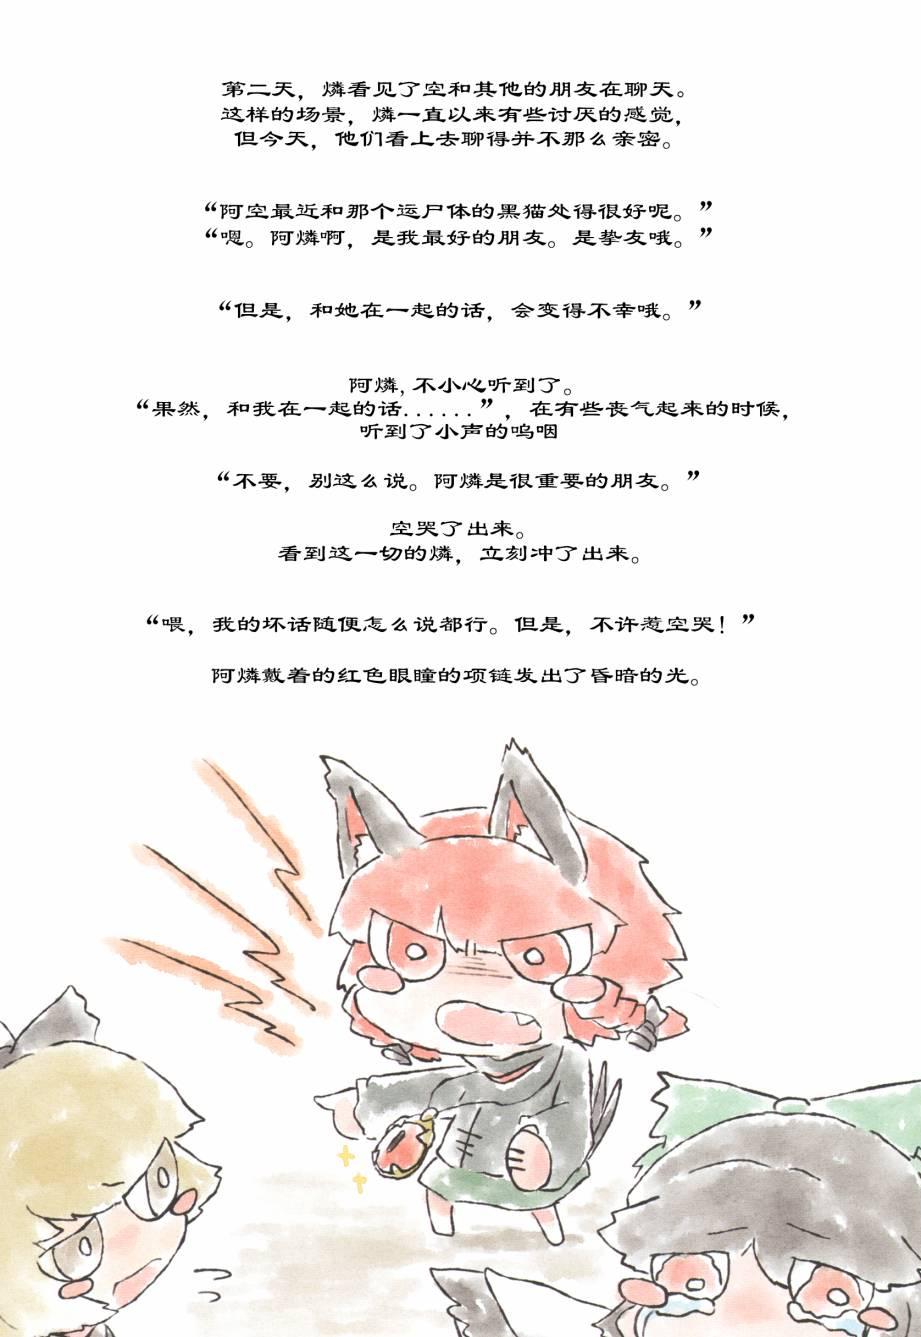 第二天，燐看见了空和其他的朋友在聊天。
这样的场景，燐一直以来有些讨厌的感觉，
但今天，他们看上去聊得并不那么亲密。
“阿空最近和那个运尸体的黑猫处得很好呢。”
“嗯。阿燐啊，是我最好的朋友。是挚友哦。”
“但是，和她在一起的话，会变得不幸哦。”
阿燐,不小心听到了。
“果然，和我在一起的话......”，在有些丧气起来的时候，
听到了小声的呜咽
“不要，别这么说。阿燐是很重要的朋友。”
空哭了出来。
看到这一切的燐，立刻冲了出来。
“喂，我的坏话随便怎么说都行。但是，不许惹空哭！”
阿燐戴着的红色眼瞳的项链发出了昏暗的光。